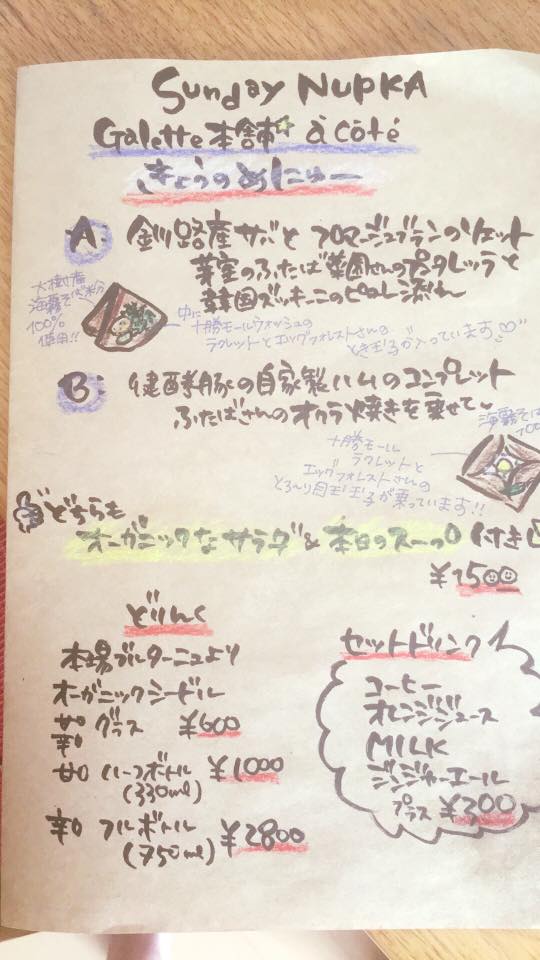 Sunday NUPKA
Galette本舗 à côté
きょうのめにゅー
A: 釧路産サバと フロマージュブランのリエット
芽室のふたば菜園さんのポタレッラと
韓国ズッキーニのピストレ添え
大樹産
海霧そば粉
100%
使用!!
中に
十勝モールウォッシュの
ラクレットとエッグフォレストさんの
とき玉子が入っています♡
B: 健酵豚の自家製ハムのコンプレット
ふたばさんのオクラ焼きを乗せて
海霧そば
100
十勝モール
ラクレットと
エッグフォレストさんの
とろ〜り目玉玉子が乗っています!!
どちらも
オーガニックなサラダ&本日のスープ付き
¥1500
どりんく
本場ブルターニュより
オーガニックシードル
甘 辛 グラス ¥600
甘口 ハーフボトル ¥1000
(330ml)
辛口 フルボトル ¥2800
(750ml)
セットドリンク
コーヒー
オレンジジュース
MILK
ジンジャーエール
プラス ¥300